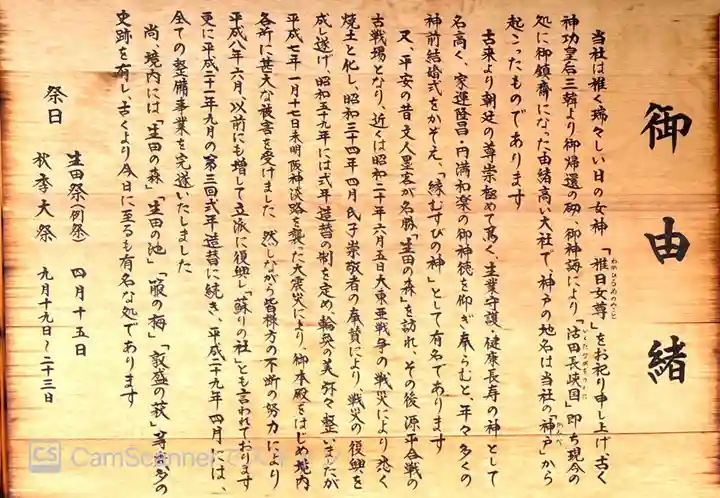 御由緒
当社は稚く瑞々しい日の女神「稚日女尊」をお祀り申し上げ、古く
わかひるめのみこと
神功皇后三韓より御帰還の砌、御神誨により「活田長峡国」即ち現今の
いくたながをのくに
処に御鎮齋になった由緒高い大社で、神戸の地名は当社の「神戸」から
かんべ
起こったものであります
古来より朝廷の尊崇極めて篤く、生業守護、健康長寿の神として
名高く、家運隆昌・円満和楽の御神徳を仰ぎ奉らむと、年々多くの
神前結婚式をかぞえ、「縁むすびの神」として有名であります
又、平安の昔文人墨客が名勝「生田の森」を訪れ、その後源平合戦の
古戦場となり、近くは昭和二十年六月五日大東亜戦争の戦災により悉く
焼土と化し、昭和三十四年四月氏子崇敬者の奉賛により、戦災の復興を
成し遂げ、昭和五十九年には式年造替の制を定め、輪奐の美弥々整いましたが
平成七年一月十七日未明阪神淡路を襲った大震災により、御本殿をはじめ境内
各所に甚大な被害を受けました 然しながら皆様方の不断の努力により
平成八年六月、以前にも増して立派に復興し「蘇りの社」とも言われております
更に平成二十一年九月の第三回式年造替に続き、平成二十九年四月には、
全ての整備事業を完遂いたしました
尚、境内には「生田の森」「生田の池」「箙の梅」「敦盛の萩」等多の
史跡を有し、古くより今日に至るも有名な処であります
祭日 生田祭(例祭) 四月十五日
秋季大祭 九月十九日~二十三日
CS CamScannerでスキャン